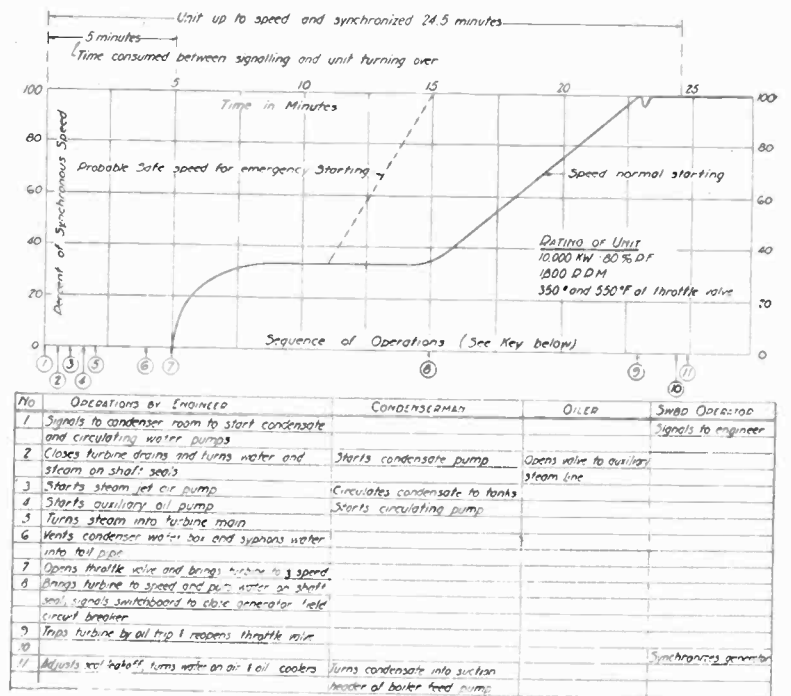 Unit up to speed and synchronized 24.5 minutes
5 minutes
Time consumed between signalling and unit turning over
100 5 10 15 20 25 100
Time in Minutes
80 80
Percent of Synchronous Speed
Probable Safe speed for emergency Starting
Speed normal starting
60 60
40 40
RATING OF UNIT
10,000 KW 80% P.F
1,800 R P M
350 # and 550°F at throttle valve
20 20
Sequence of Operations (See Key below)
0 0
1 2 3 4 5 6 7 8 9 10 11
No OPERATIONS BY ENGINEER CONDENSERMAN OILER SWBD OPERATOR
1 Signals to condenser room to start condensate Signals to engineer
and circulating water pumps
2 Closes turbine drains and turns water and Starts condensate pump Opens valve to auxiliary
steam on shaft seals steam line
3 Starts steam jet air pump Circulates condensate to tanks
4 Starts auxiliary oil pump Starts circulating pump
5 Turns steam into turbine main
6 Vents condenser water box and syphons water
into tail pipe
7 Opens throttle valve and brings turbine to speed
8 Brings turbine to speed and puts water on shaft
seal, signals switchboard to close generator field
circuit breaker
9 Trips turbine by oil trip & reopens throttle valve
10 Synchronizes generator
11 Adjusts seal leakoff, turns water on air & oil coolers Turns condensate into suction
header of boiler feed pump